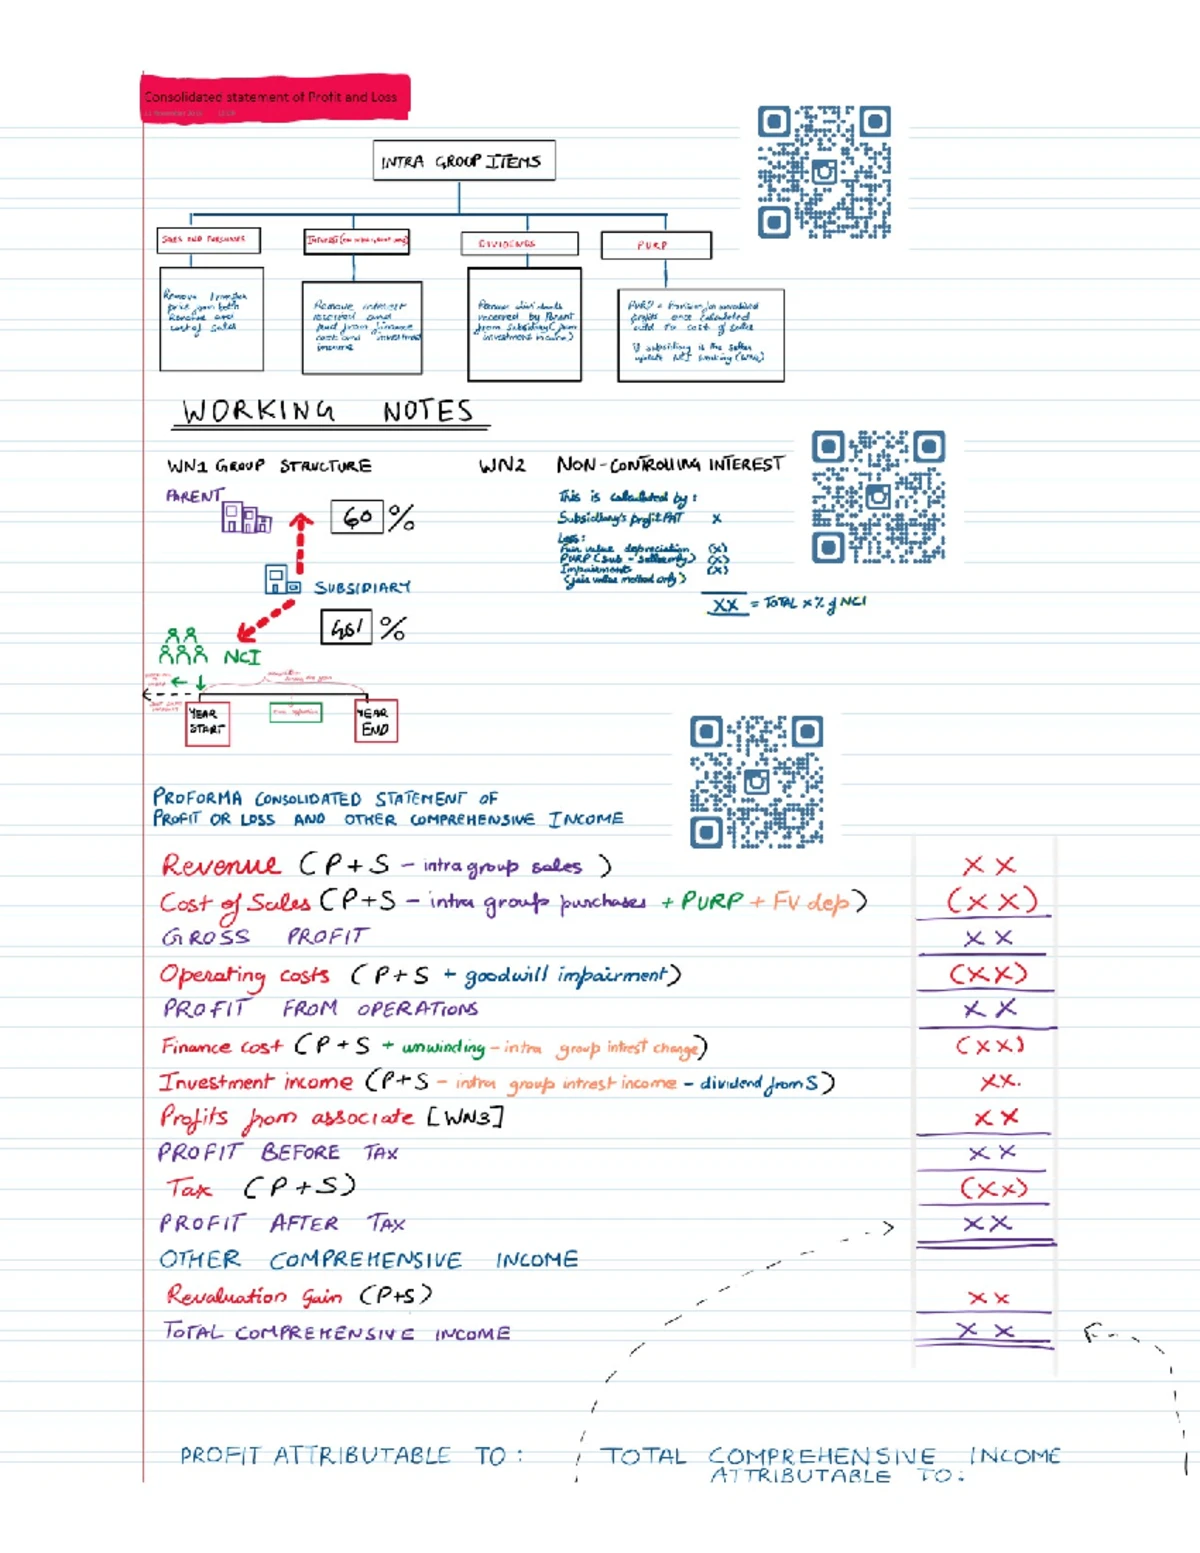 Consolidated statement of Profit and Loss
INTRA GROUP ITEMS
SALES AND PURCHASES
DIVIDENDS
PURP
Remove transfer
price from both
Revenue and
cost of sales
Remove interest
received and
paid from finance
cost and investment
income
Remove dividends
received by Parent
from subsidiary (from
investment income)
PURP = Provision for unrealised
profits once calculated
add to cost of sales
If subsidiary is the seller
update NCI working (WN2)
WORKING NOTES
WN1 GROUP STRUCTURE
PARENT
60 %
SUBSIDIARY
%
NCI
YEAR
START
YEAR
END
WN2 NON-CONTROLLING INTEREST
This is calculated by:
Subsidiary's profit PAT X
Less:
Fair value depreciation (X)
PURP (sub - seller only) (X)
Impairment (X)
(fair value method only)
XX = TOTAL x % of NCI
PROFORMA CONSOLIDATED STATEMENT OF
PROFIT OR LOSS AND OTHER COMPREHENSIVE INCOME
Revenue (P+S - intra group sales ) XX
Cost of Sales (P+S - intra group purchases + PURP + FV dep) (XX)
GROSS PROFIT XX
Operating costs (P+S + goodwill impairment) (XX)
PROFIT FROM OPERATIONS XX
Finance cost (P+S + unwinding - intra group intrest charge) (XX)
Investment income (P+S - intra group intrest income - dividend from S) XX.
Profits from associate [WN3] XX
PROFIT BEFORE TAX XX
Tax (P+S) (XX)
PROFIT AFTER TAX XX
OTHER COMPREHENSIVE INCOME
Revaluation Gain (P+S) XX
TOTAL COMPREHENSIVE INCOME XX
PROFIT ATTRIBUTABLE TO:
TOTAL COMPREHENSIVE INCOME
ATTRIBUTABLE TO: